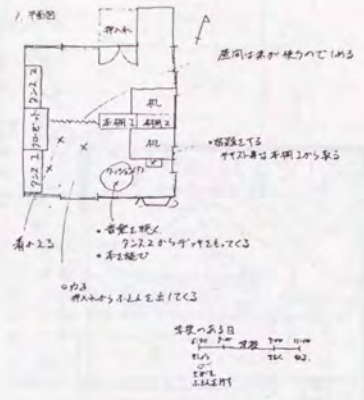 1. 平面図
押入れ
昼間は弟が使うのでしめる
タンス2
クロゼット
タンス1
机
本棚1
本棚2
机
クッション
・宿題をする
テキスト等は本棚1から取る
着かえる
・音楽を聴く
タンス2からデッキをもってくる
・本を読む
・ねる
押入れからふとんを出してくる
学校のある日
学校
ふとんを片す